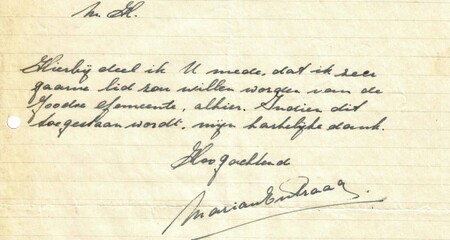 M. H.
Hierbij deel ik U mede, dat ik zeer
gaarne lid zou willen worden van de
Joodse Gemeente, alhier. Indien dit
toegestaan wordt, mijn hartelijke dank.
Hoogachtend
Marian